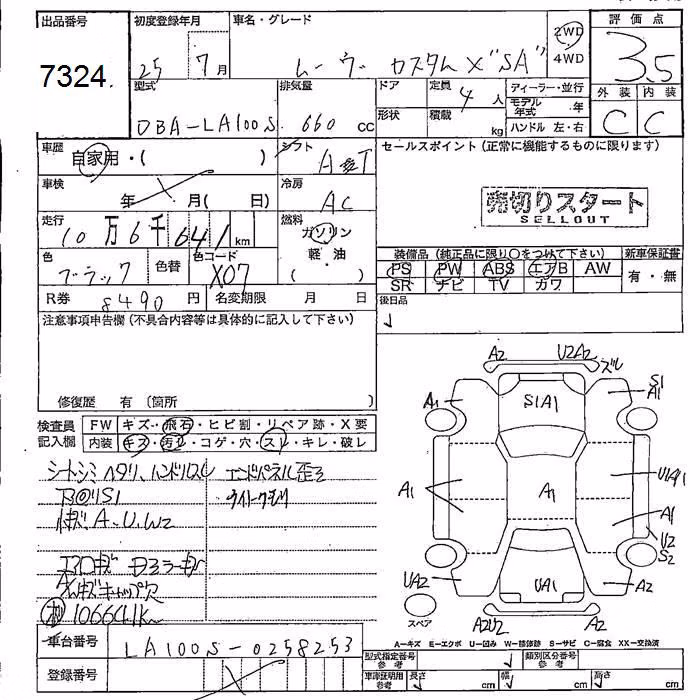 出品番号
7324.
初度登録年月
25 7月
車名・グレード
ムーヴ カスタム X"SA"
2WD
4WD
評価点
3.5
外装 内装
C C
型式
DBA-LA100S
排気量
660 cc
ドア
定員
4 人
形状
積載
kg
ディーラー・並行
モデル年式 年
ハンドル 左・右
車歴
自家用・( )
シフト
冷房
AC
車検
年 月( 日)
走行
10万6千641km
燃料
ガソリン
軽・油
( )
色
ブラック
色替
色コード
X07
R券 8490円
名変期限 月 日
セールスポイント(正常に機能するものに限ります)
売切りスタート
SELLOUT
装備品(純正品に限り○をつけて下さい)
新車保証書
PS PW ABS エアB AW
SR ナビ TV カワ
有・無
後日品
注意事項申告欄(不具合内容等は具体的に記入して下さい)
修復歴 有 〔箇所 〕
検査員記入欄
FW キズ・飛石・ヒビ割・リペア跡・X要
内装 キズ・汚れ・コゲ・穴・スレ・キレ・破レ
シートシミ ヘタリ、ハンドルスレ
エンドパネル歪ミ
ライトクモリ
A、U、W2
106641K
車台番号
LA100S-0258253
登録番号
A2 U2A2
ズレ
A1 S1A1 S1
A1
A1 A1 U1A1
A1
U2
S2
UA2 UA1 A2
スペア
A2U2 A2
A-キズ E-エクボ U-凹み W-補修跡 S-サビ C-腐食 XX-交換済
型式指定番号
参考
類別区分番号
参考
車庫証明用
参考
長さ cm 幅 cm 高さ cm